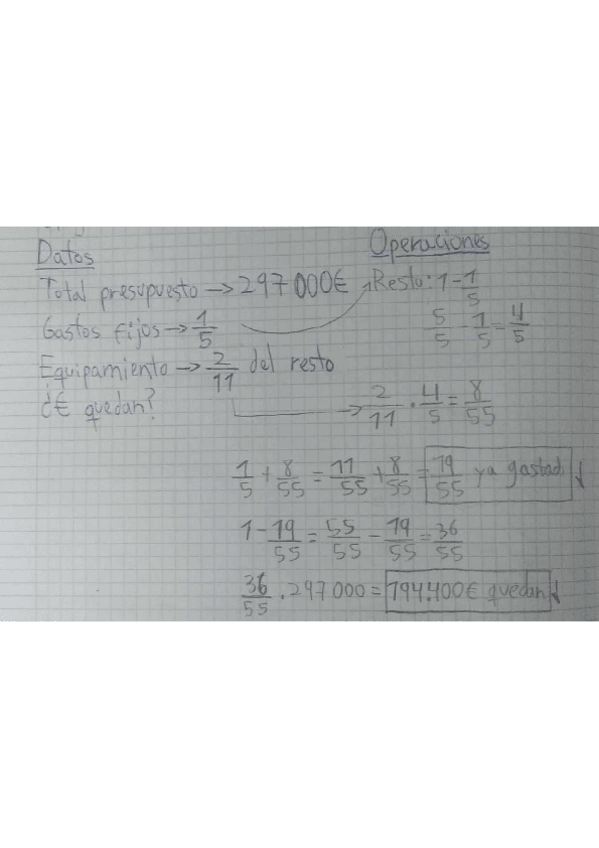 Datos
Operaciones
Total presupuesto → 297 000€
Resto: 1 - 1/5
Gastos fijos → 1/5
5/5 - 1/5 = 4/5
Equipamiento → 2/11 del resto
¿€ quedan?
→ 2/11 · 4/5 = 8/55
1/5 + 8/55 = 11/55 + 8/55 = 19/55 ya gastad
1 - 19/55 = 55/55 - 19/55 = 36/55
36/55 · 297 000 = 194.400€ quedan